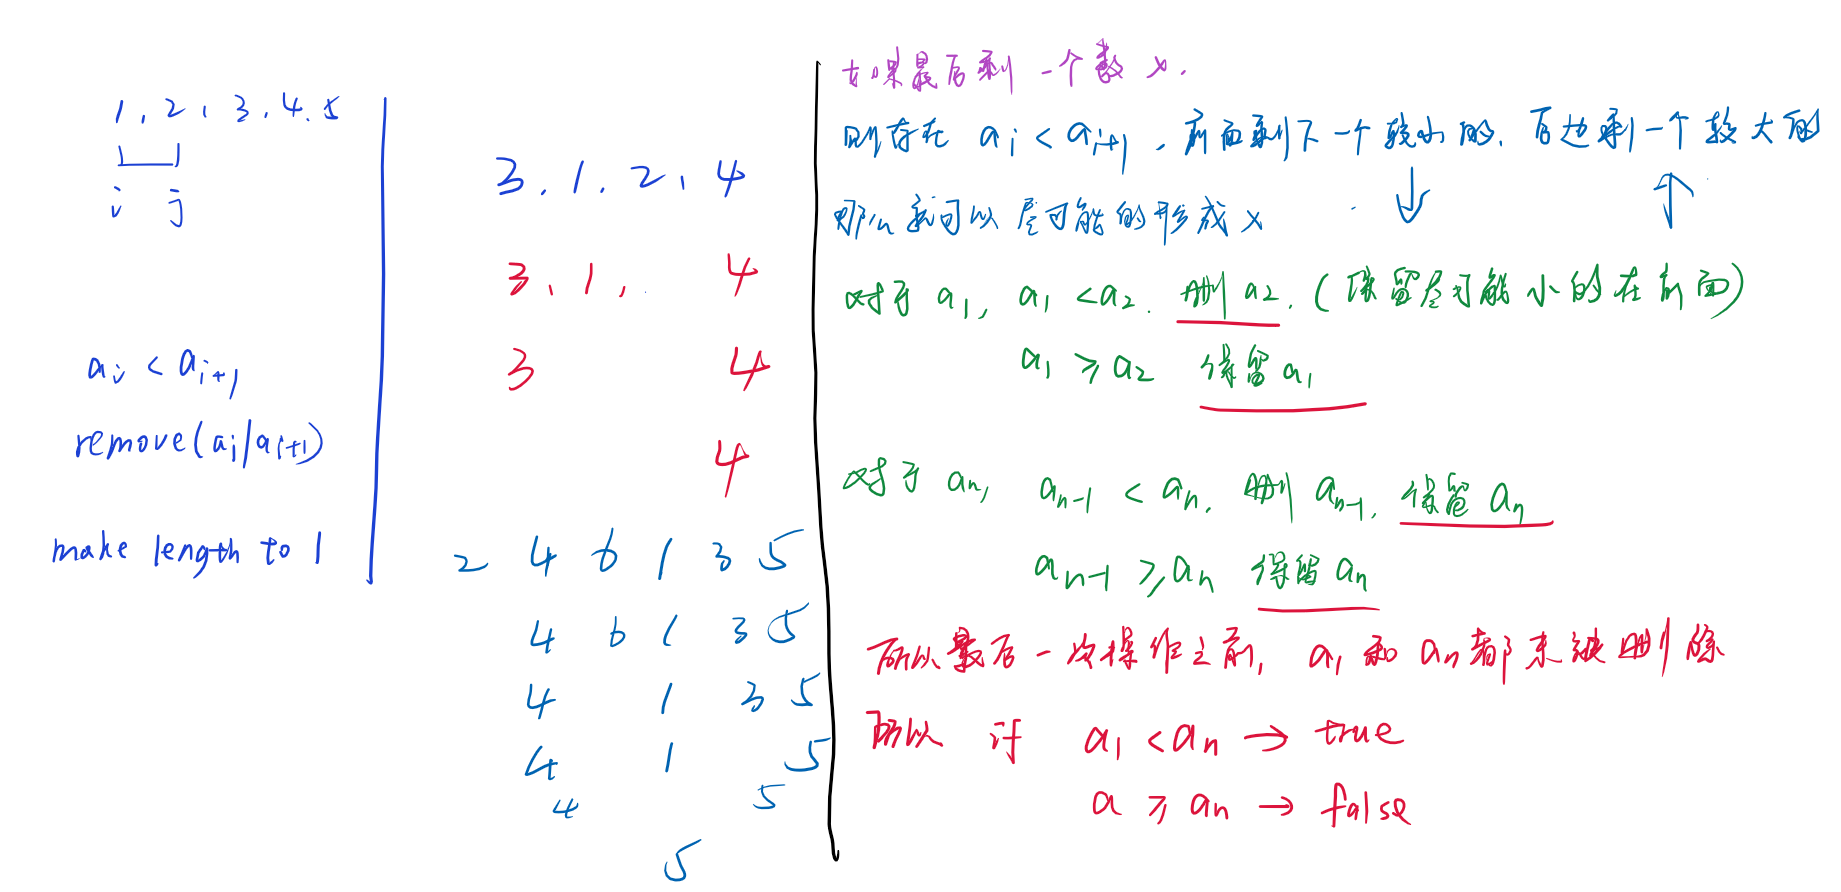 1, 2, 3, 4, 5
i j
ai < ai+1
remove(ai/ai+1)
make length to 1
3, 1, 2, 4
3, 1, 4
3 4
4
2 4 6 1 3 5
4 6 1 3 5
4 1 3 5
4 1 5
4 5
5
如果最后剩一个数 x.
则存在 ai < ai+1, 前面剩下一个较小的, 后边剩一个较大的
那么就可以尽可能的形成 x
对于 a1, a1 < a2. 删 a2. (保留尽可能小的在前面)
a1 ≥ a2 保留 a1
对于 an, an-1 < an, 删 an-1, 保留 an
an-1 ≥ an 保留 an
所以最后一次操作之前, a1 和 an 都未被删除
所以 if a1 < an → true
a ≥ an → false